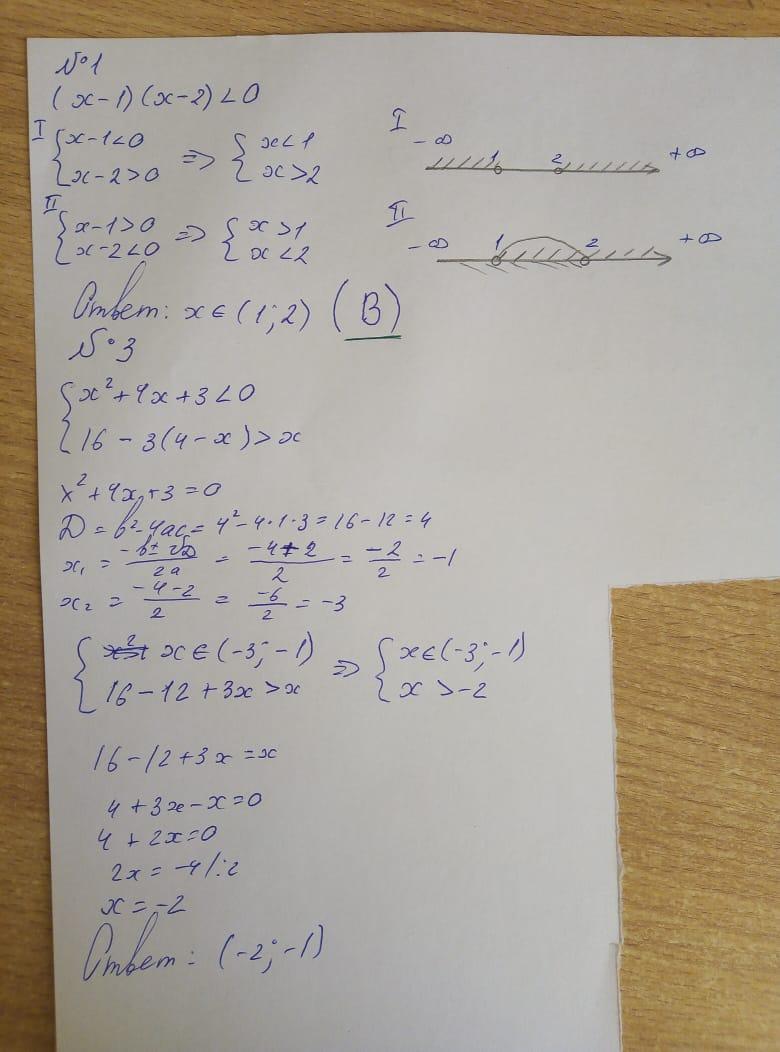 №1
(x-1)(x-2)<0
I {x-1<0 x-2>0 => {x<1 x>2
I -∞ 1 2 +∞
II {x-1>0 x-2<0 => {x>1 x<2
II -∞ 1 2 +∞
Ответ: x∈(1;2) (В)
№3
{x²+4x+3<0
16-3(4-x)>x
x²+4x+3=0
D=b²-4ac=4²-4·1·3=16-12=4
x₁ = (-b±√D)/2a = (-4+2)/2 = -2/2 = -1
x₂ = (-4-2)/2 = -6/2 = -3
{x∈(-3;-1) => {x∈(-3;-1)
16-12+3x>x x>-2
16-12+3x=x
4+3x-x=0
4+2x=0
2x=-4/:2
x=-2
Ответ: (-2;-1)